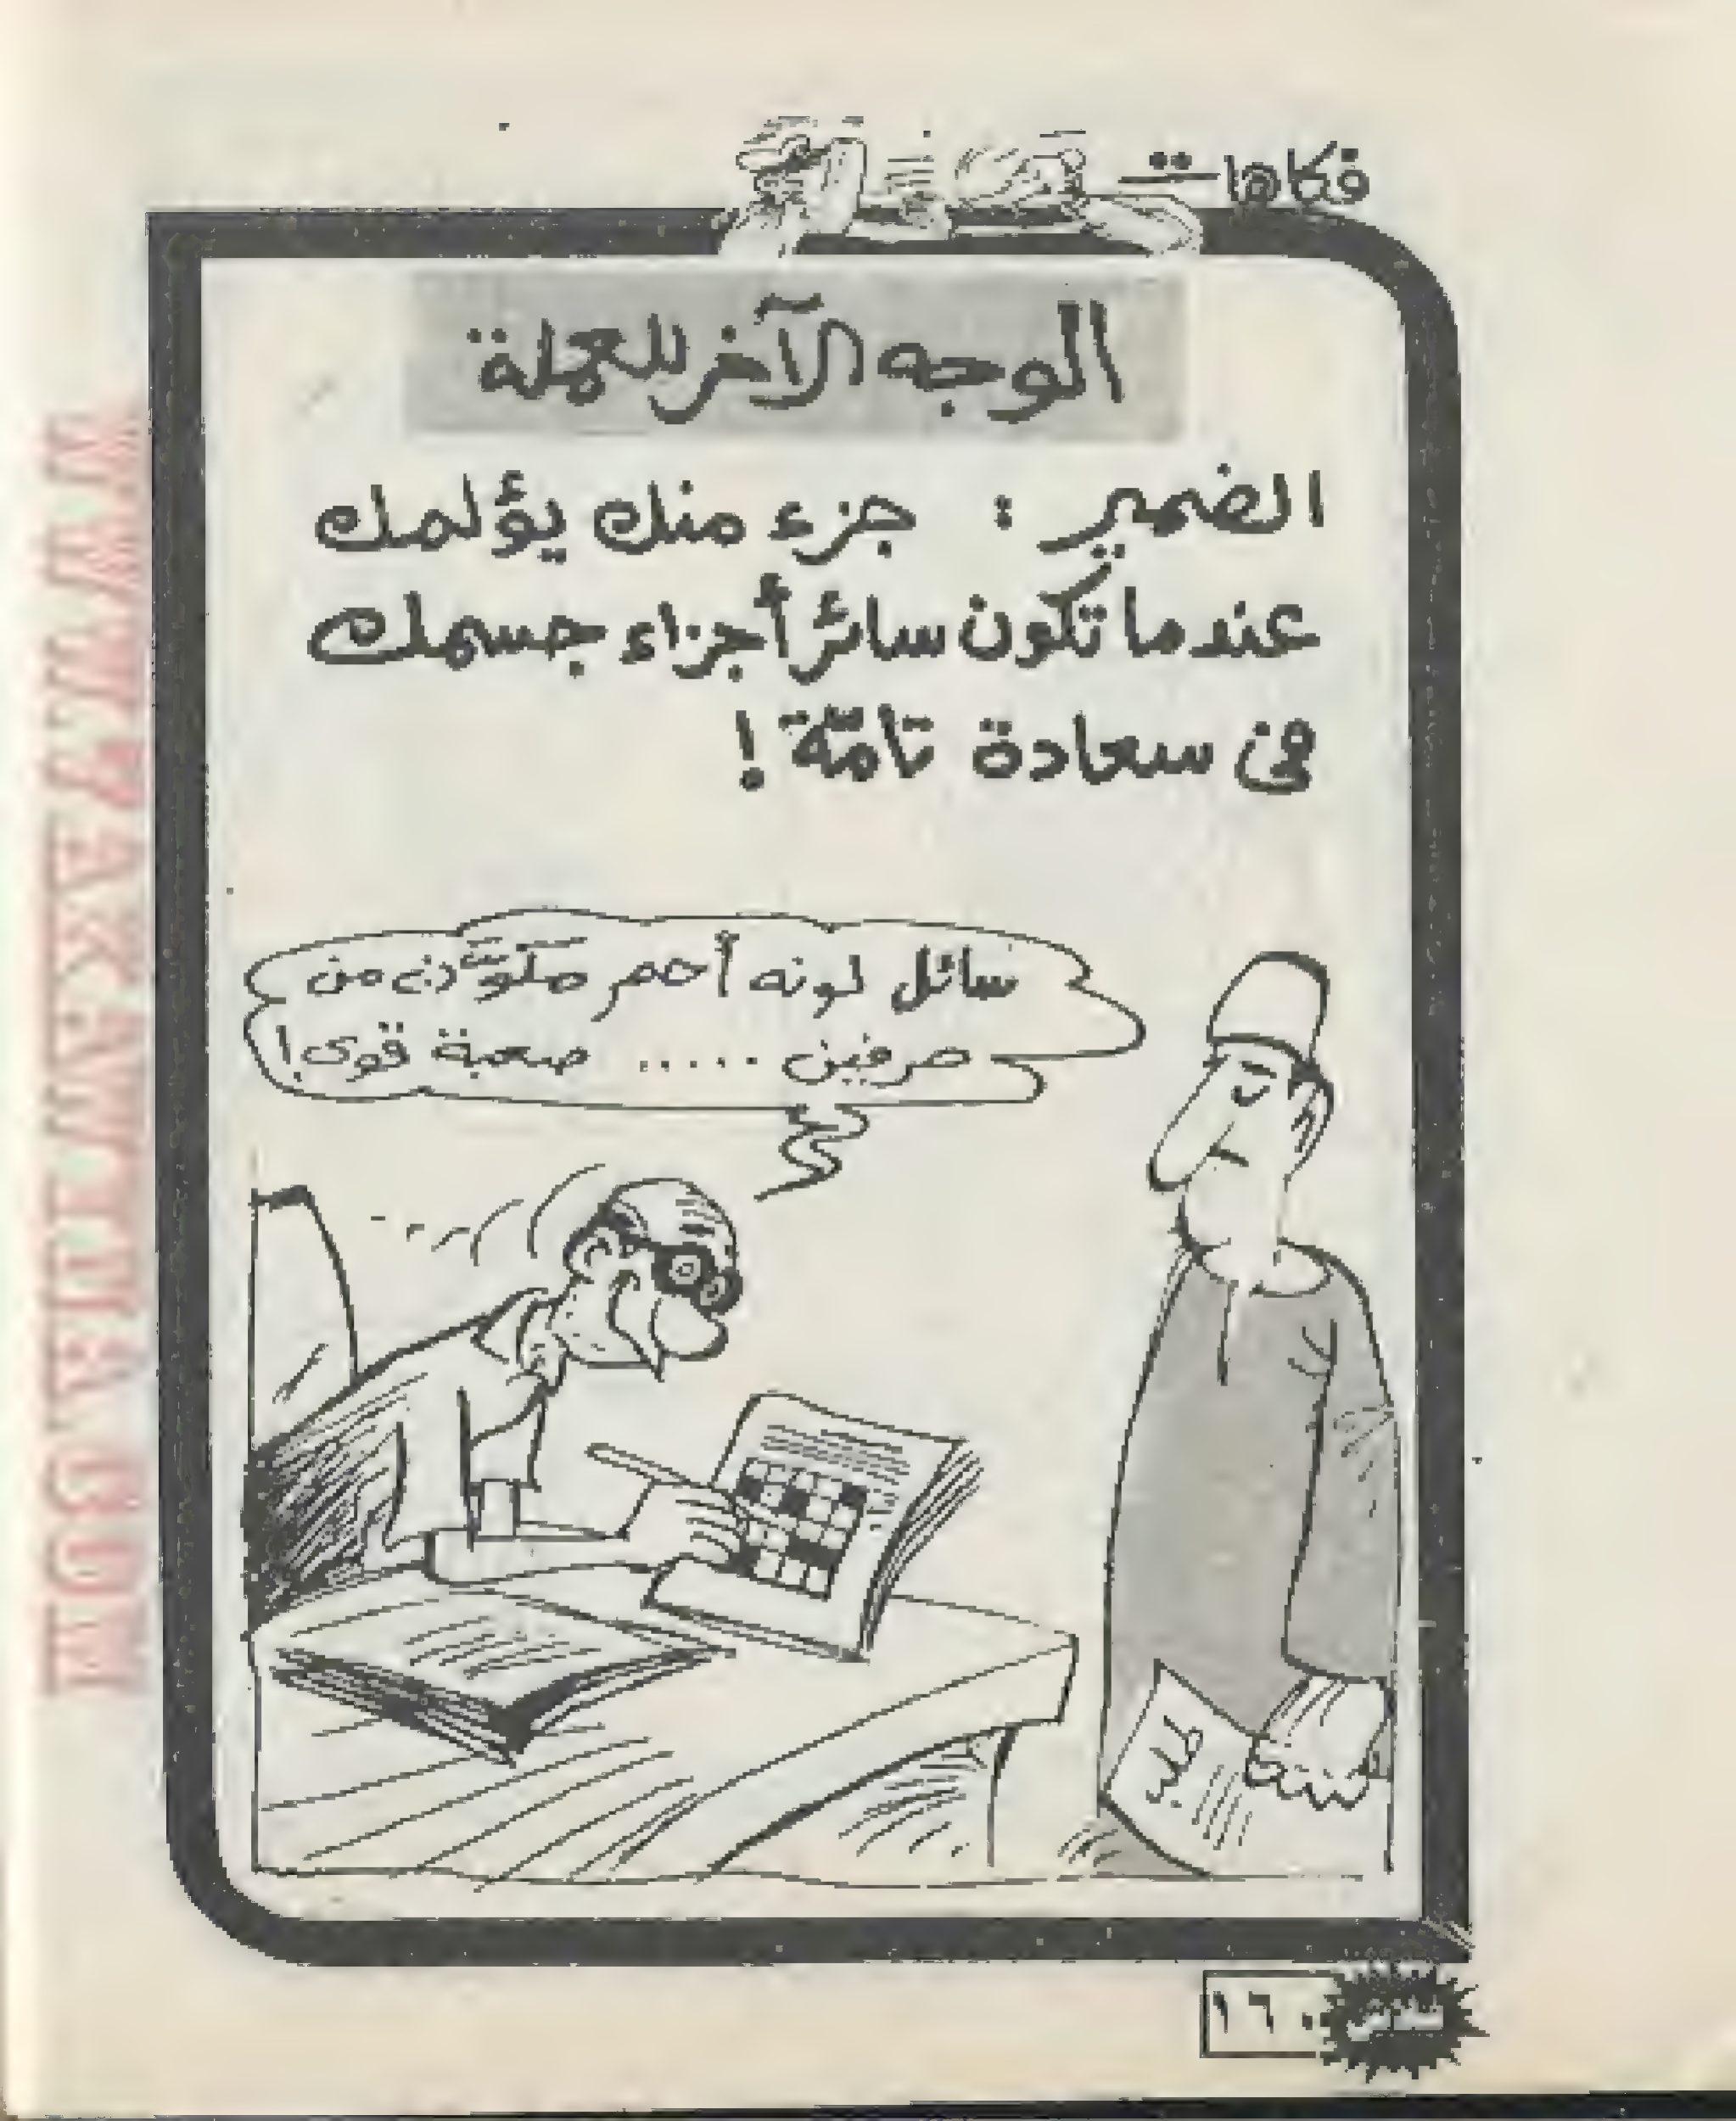 فكاهات
الوجه الآخر للعملة
الضمير : جزء منك يؤلمك
عندما تكون سائر أجزاء جسمك
فى سعادة تامّة !
سائل لونه أحمر مكوّن من
حرفين ..... صعبة قوى !
طلب
فلاش
١٦٠